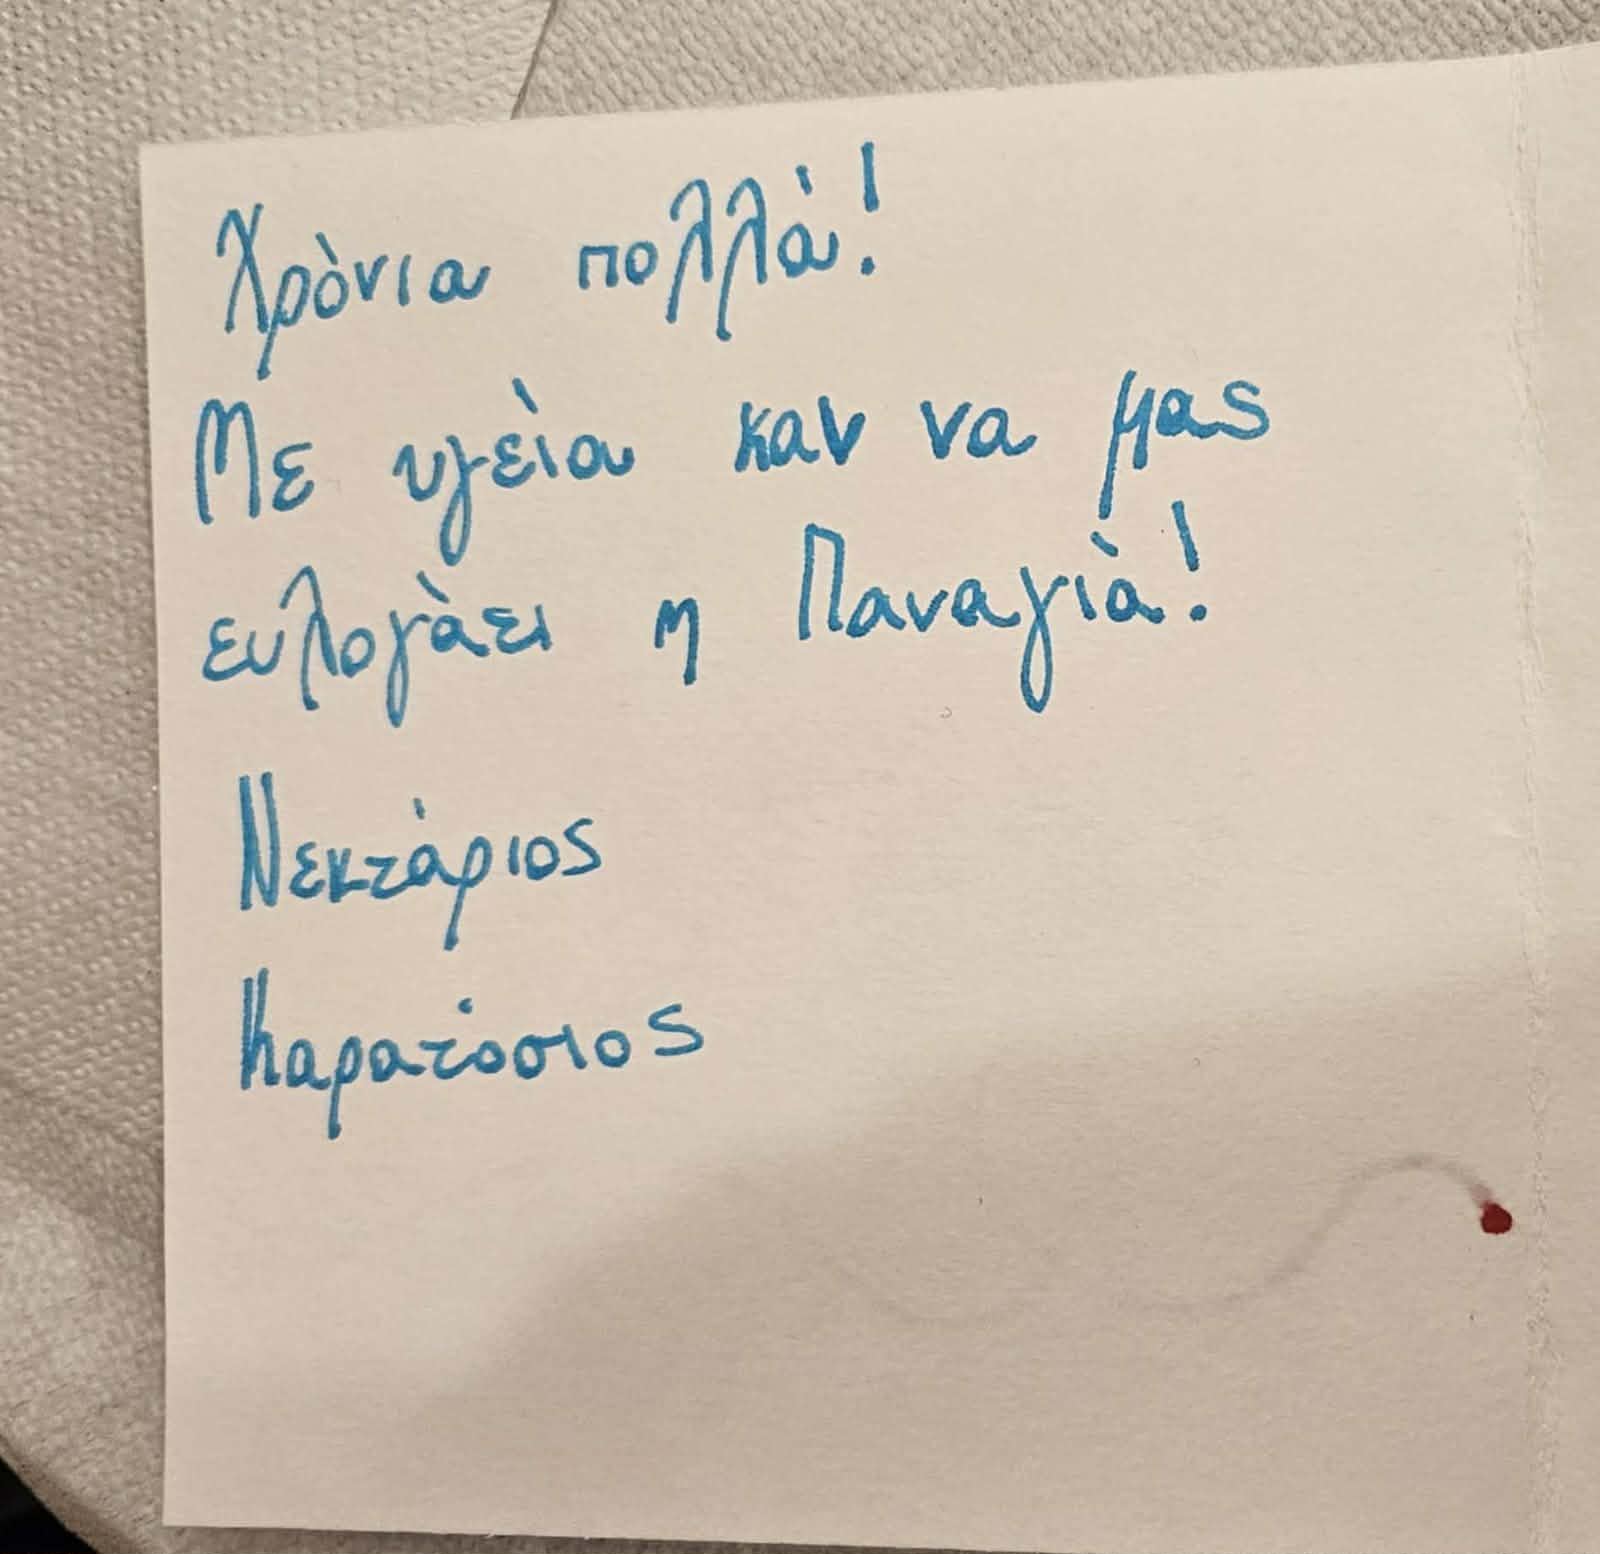 Χρόνια πολλά!
Με υγεία και να μας
ευλογάει η Παναγιά!
Νεκτάριος
Καρατόσιος